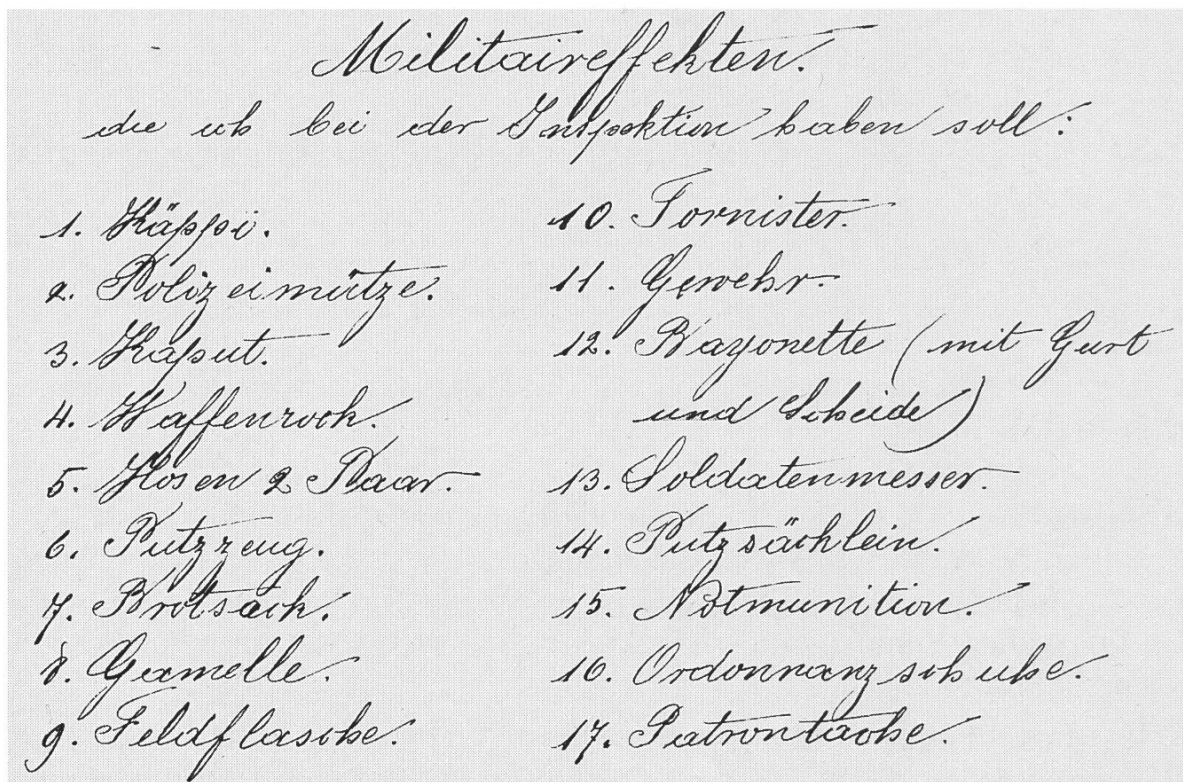 Militaireffekten.
die ich bei der Inspektion haben soll:
1. Käppi.
2. Polizeimütze.
3. Kaput.
4. Waffenrock.
5. Hosen 2 Paar.
6. Putzzeug.
7. Brotsack.
8. Gamelle.
9. Feldflasche.
10. Tornister.
11. Gewehr.
12. Bayonette (mit Gurt
und Scheide)
13. Soldatenmesser.
14. Putzsäcklein.
15. Notmunition.
16. Ordonnanzschuhe.
17. Patrontasche.